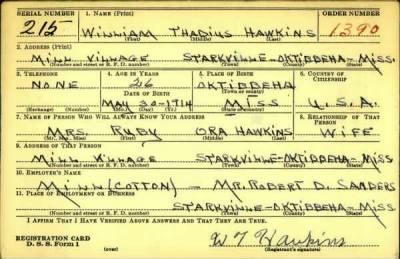 SERIAL NUMBER 1. NAME (Print) ORDER NUMBER
215 WILLIAM THADIUS HAWKINS 1390
(First) (Middle) (Last)
2. ADDRESS (Print)
MILL VILLAGE STARKVILLE-OKTIBBEHA-MISS.
(Number and street or R. F. D. number) (Town) (County) (State)
3. TELEPHONE 4. AGE IN YEARS 5. PLACE OF BIRTH 6. COUNTRY OF CITIZENSHIP
NONE 26 OKTIBBEHA
DATE OF BIRTH (Town or county)
MAY 30-1914 MISS U.S.A.
(Exchange) (Number) (Mo.) (Day) (Yr.) (State or country)
7. NAME OF PERSON WHO WILL ALWAYS KNOW YOUR ADDRESS 8. RELATIONSHIP OF THAT PERSON
MRS. RUBY ORA HAWKINS WIFE
(Mr., Mrs., Miss) (First) (Middle) (Last)
9. ADDRESS OF THAT PERSON
MILL VILLAGE STARKVILLE-OKTIBBEHA-MISS
(Number and street or R. F. D. number) (Town) (County) (State)
10. EMPLOYER'S NAME
MILL (COTTON) - MR. ROBERT D. SANDERS
11. PLACE OF EMPLOYMENT OR BUSINESS
STARKVILLE-OKTIBBEHA-MISS
(Number and street or R. F. D. number) (Town) (County) (State)
I AFFIRM THAT I HAVE VERIFIED ABOVE ANSWERS AND THAT THEY ARE TRUE.
REGISTRATION CARD
D. S. S. Form 1 (over) W T Hawkins
(Registrant's signature)